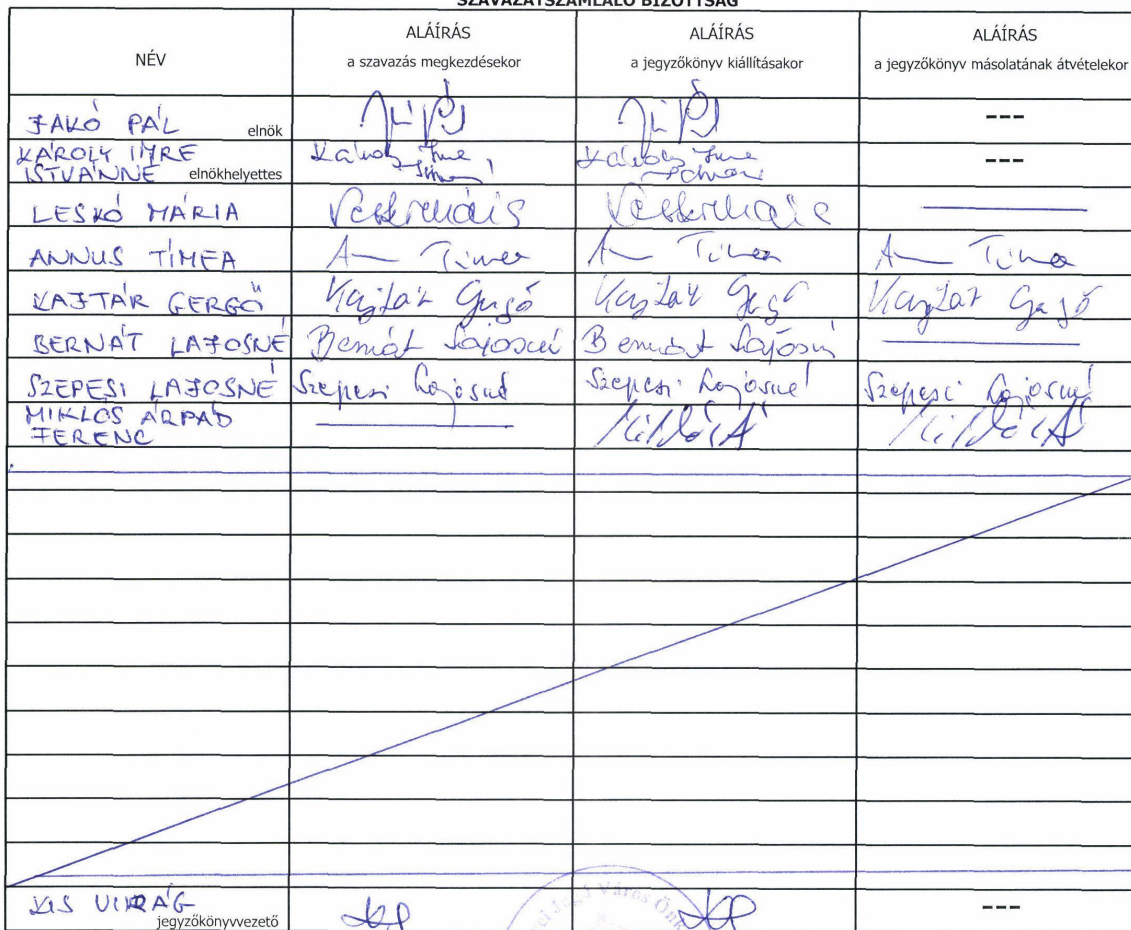 SZAVAZATSZÁMLÁLÓ BIZOTTSÁG
NÉV
ALÁÍRÁS
a szavazás megkezdésekor
ALÁÍRÁS
a jegyzőkönyv kiállításakor
ALÁÍRÁS
a jegyzőkönyv másolatának átvételekor
JAKÓ PÁL elnök ---
KÁROLY IMRE
ISTVÁNNÉ elnökhelyettes ---
LESKÓ MÁRIA
ANNUS TÍMEA Tímea Tímea Tímea
KAJTÁR GERGŐ Kajtár Gergő Kajtár Gergő Kajtár Gergő
BERNÁT LAJOSNÉ Bernát Lajosné Bernát Lajosné
SZEPESI LAJOSNÉ Szepesi Lajosné Szepesi Lajosné Szepesi Lajosné
MIKLÓS ÁRPÁD
FERENC
KIS VIRÁG
jegyzőkönyvvezető ---